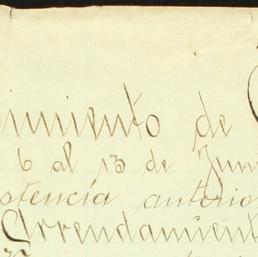 imiento de
6 al 13 de Juni
stencia anterio
Arrendamient